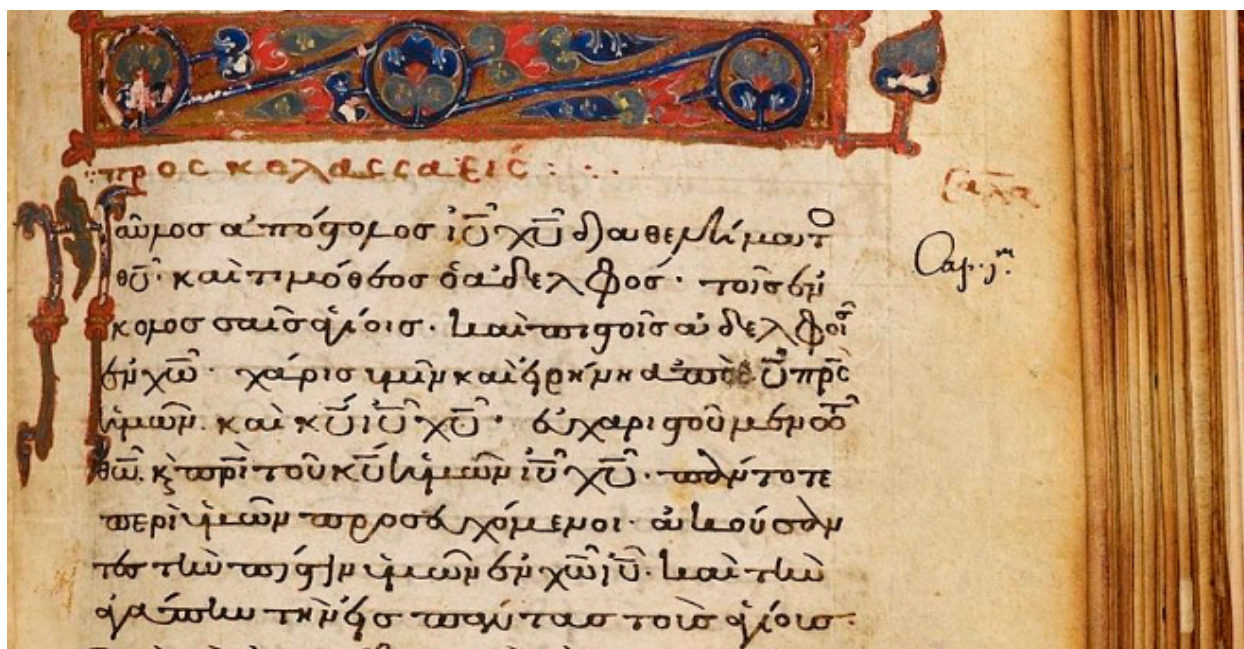 προς κολασσαεις
Παῦλος ἀπόστολος ἰῦ χῦ διὰ θελήματο
θῦ· καὶ τιμόθεος ὁ ἀδελφός· τοῖς ἐν
κολοσσαῖς ἁγίοις· καὶ πιστοῖς ἀδελφοῖς
ἐν χῶ· χάρις ὑμῖν καὶ εἰρήνη ἀπὸ θῦ πρς
ἡμῶν καὶ κῦ ἰῦ χῦ· εὐχαριστοῦμεν
θῶ κ πρι τοῦ κῦ ἡμῶν ἰῦ χῦ· πάντοτε
περὶ ὑμῶν προσευχόμενοι· ἀκούσαν
τες τὴν πίστιν ὑμῶν ἐν χῶ ἰῦ· καὶ τὴν
ἀγάπην τὴν εἰς πάντας τοὺς ἁγίους·
Cap. 1m